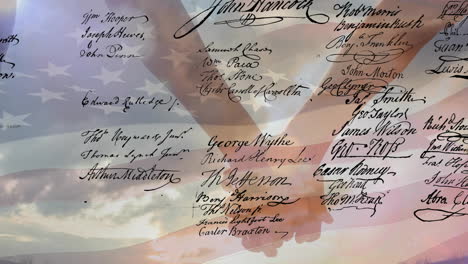 John Hancock
Wm Hooper
Joseph Hewes,
John Penn
Edward Rutledge.
Thos Heyward Junr.
Thomas Lynch Junr.
Arthur Middleton
Samuel Chase
Wm Paca
Thos Stone
Charles Carroll of Carrollton
George Wythe
Richard Henry Lee
Th Jefferson
Benj Harrison
Thos Nelson jr.
Francis Lightfoot Lee
Carter Braxton
Robt Morris
Benjamin Rush
Benj. Franklin
John Morton
Geo Clymer
Jas. Smith
Geo. Taylor
James Wilson
Geo. Ross
Caesar Rodney
Geo Read
Tho M:Kean
Lewis
Richd.
Abra Clark